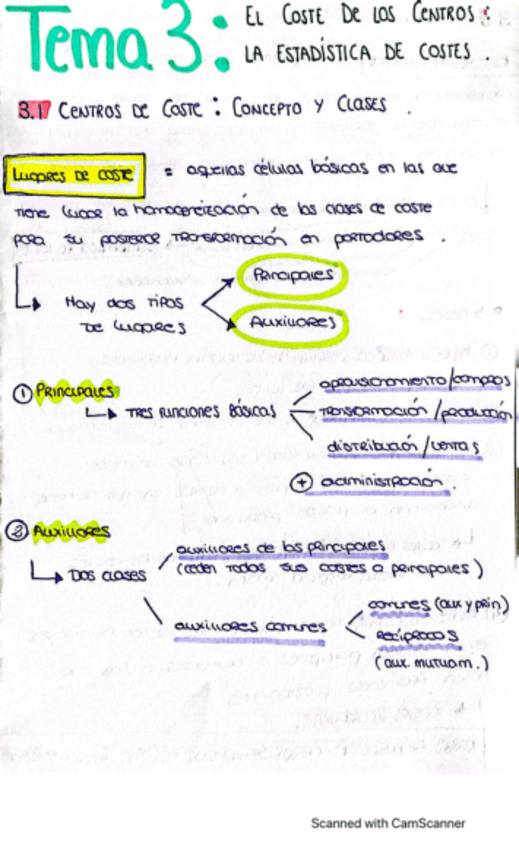 Tema 3: EL COSTE DE LOS CENTROS:
LA ESTADÍSTICA DE COSTES.
3.1 CENTROS DE COSTE: CONCEPTO Y CLASES.
LUGARES DE COSTE = aquellas células básicas en las que
tiene lugar la homogeneización de las clases de coste
para su posterior transformación en portadores.
Principales
Hay dos tipos
de lugares
Auxiliares
① Principales
aprovisionamiento/compras
Tres funciones básicas
transformación/producción
distribución/ventas
+ administración.
② Auxiliares
auxiliares de los principales
Dos clases
(ceden todos sus costes a principales)
auxiliares comunes
comunes (aux y prin)
recíprocos
(aux. mutuam.)
Scanned with CamScanner